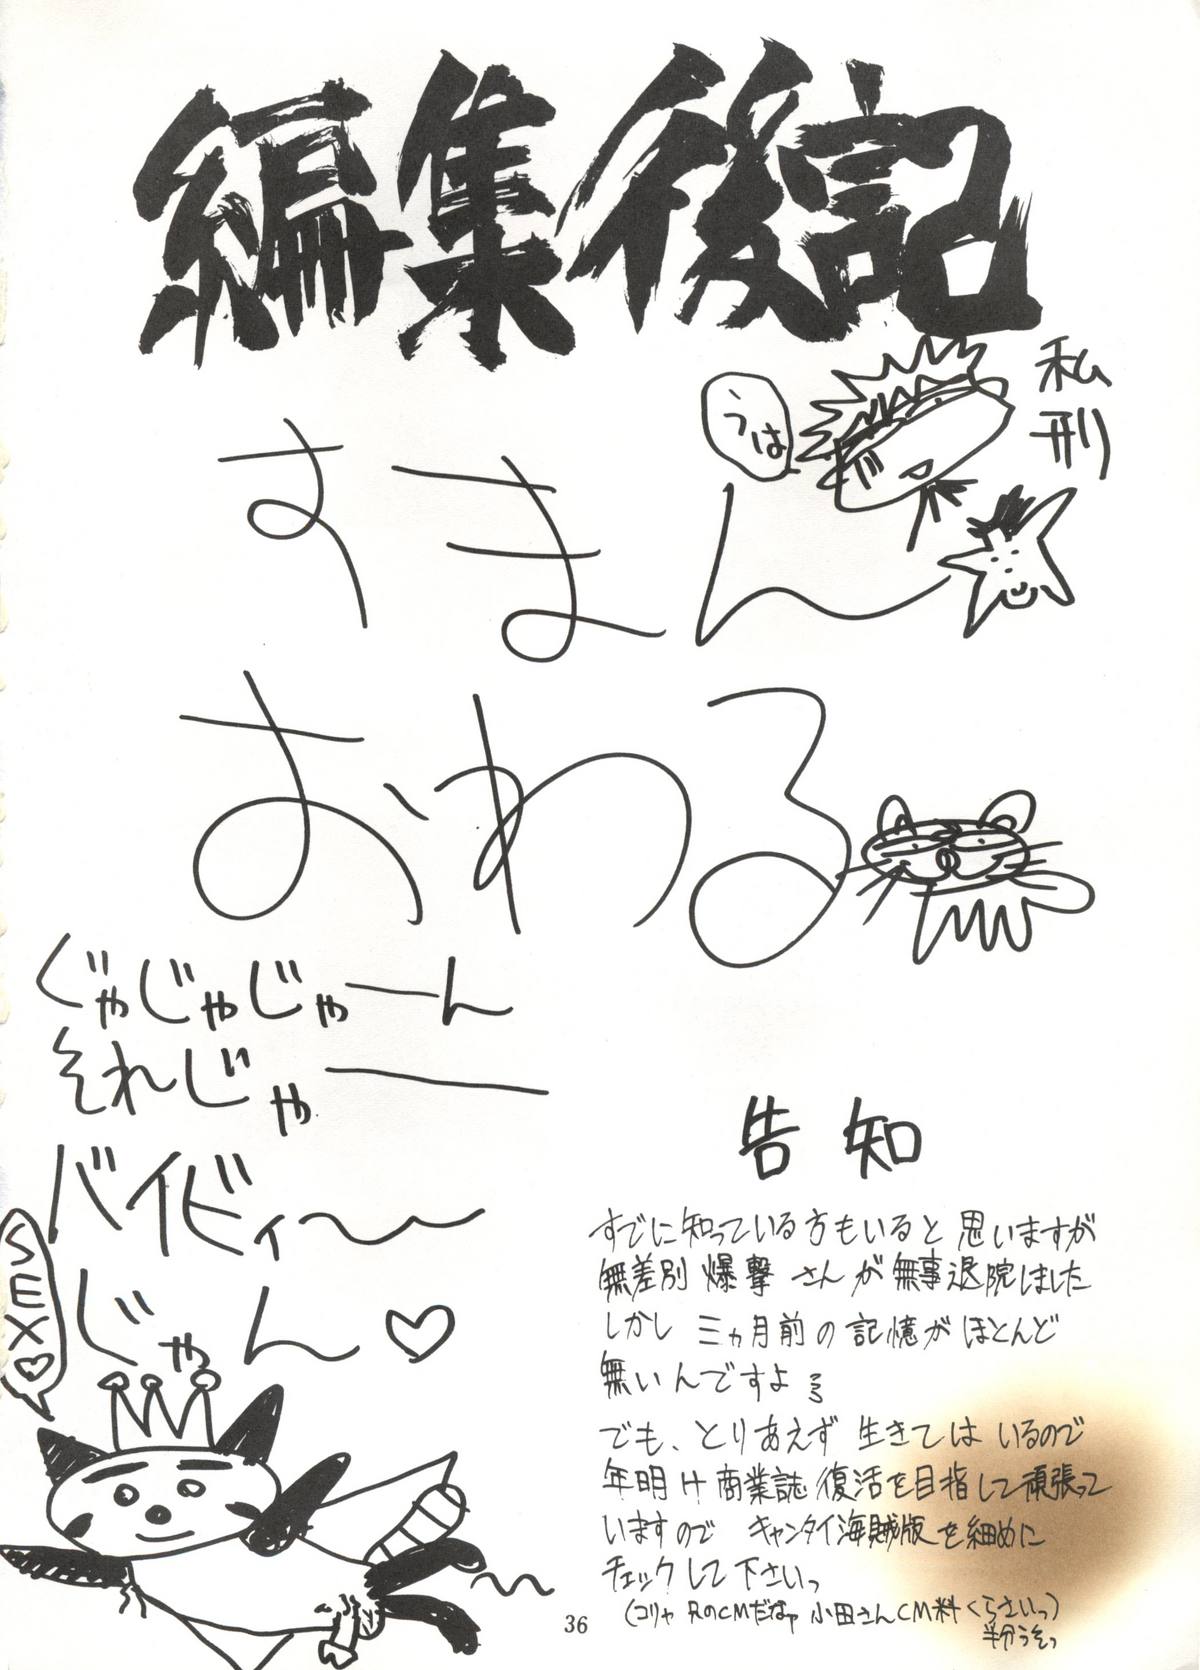 編集後記
私刑
うは
すまん
おわる
ぐゃじゃじゃーん
それじゃー
バイビィ〜〜
じゃん♡
SEX♡
告知
すでに知っている方もいると思いますが
無差別爆撃さんが無事退院しました
しかし三ヵ月前の記憶がほとんど
無いんですよ
でも、とりあえず生きてはいるので
年明け商業誌復活を目指して頑張って
いますので キャンタイ海賊版を細めに
チェックして下さいっ
(コリャ RのCMだなァ 小田さんCM料くらさいっ)
半分うそっ
36